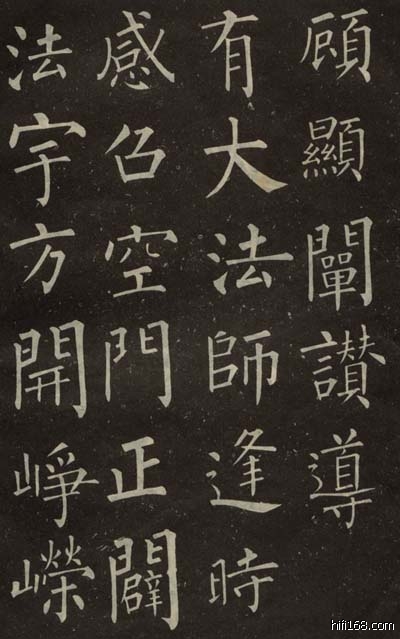 頋顯闡讃導
有大法師逢時
感召空門正闢
法宇方開崢嶸
hifi168.com